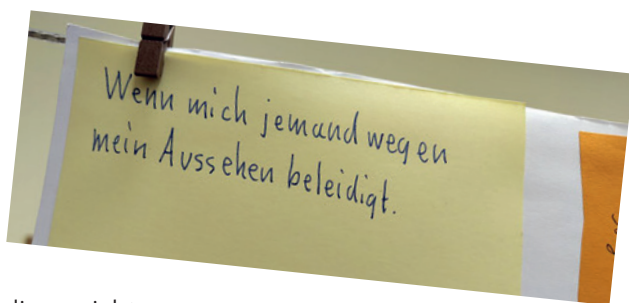 Wenn mich jemand wegen
mein Aussehen beleidigt.